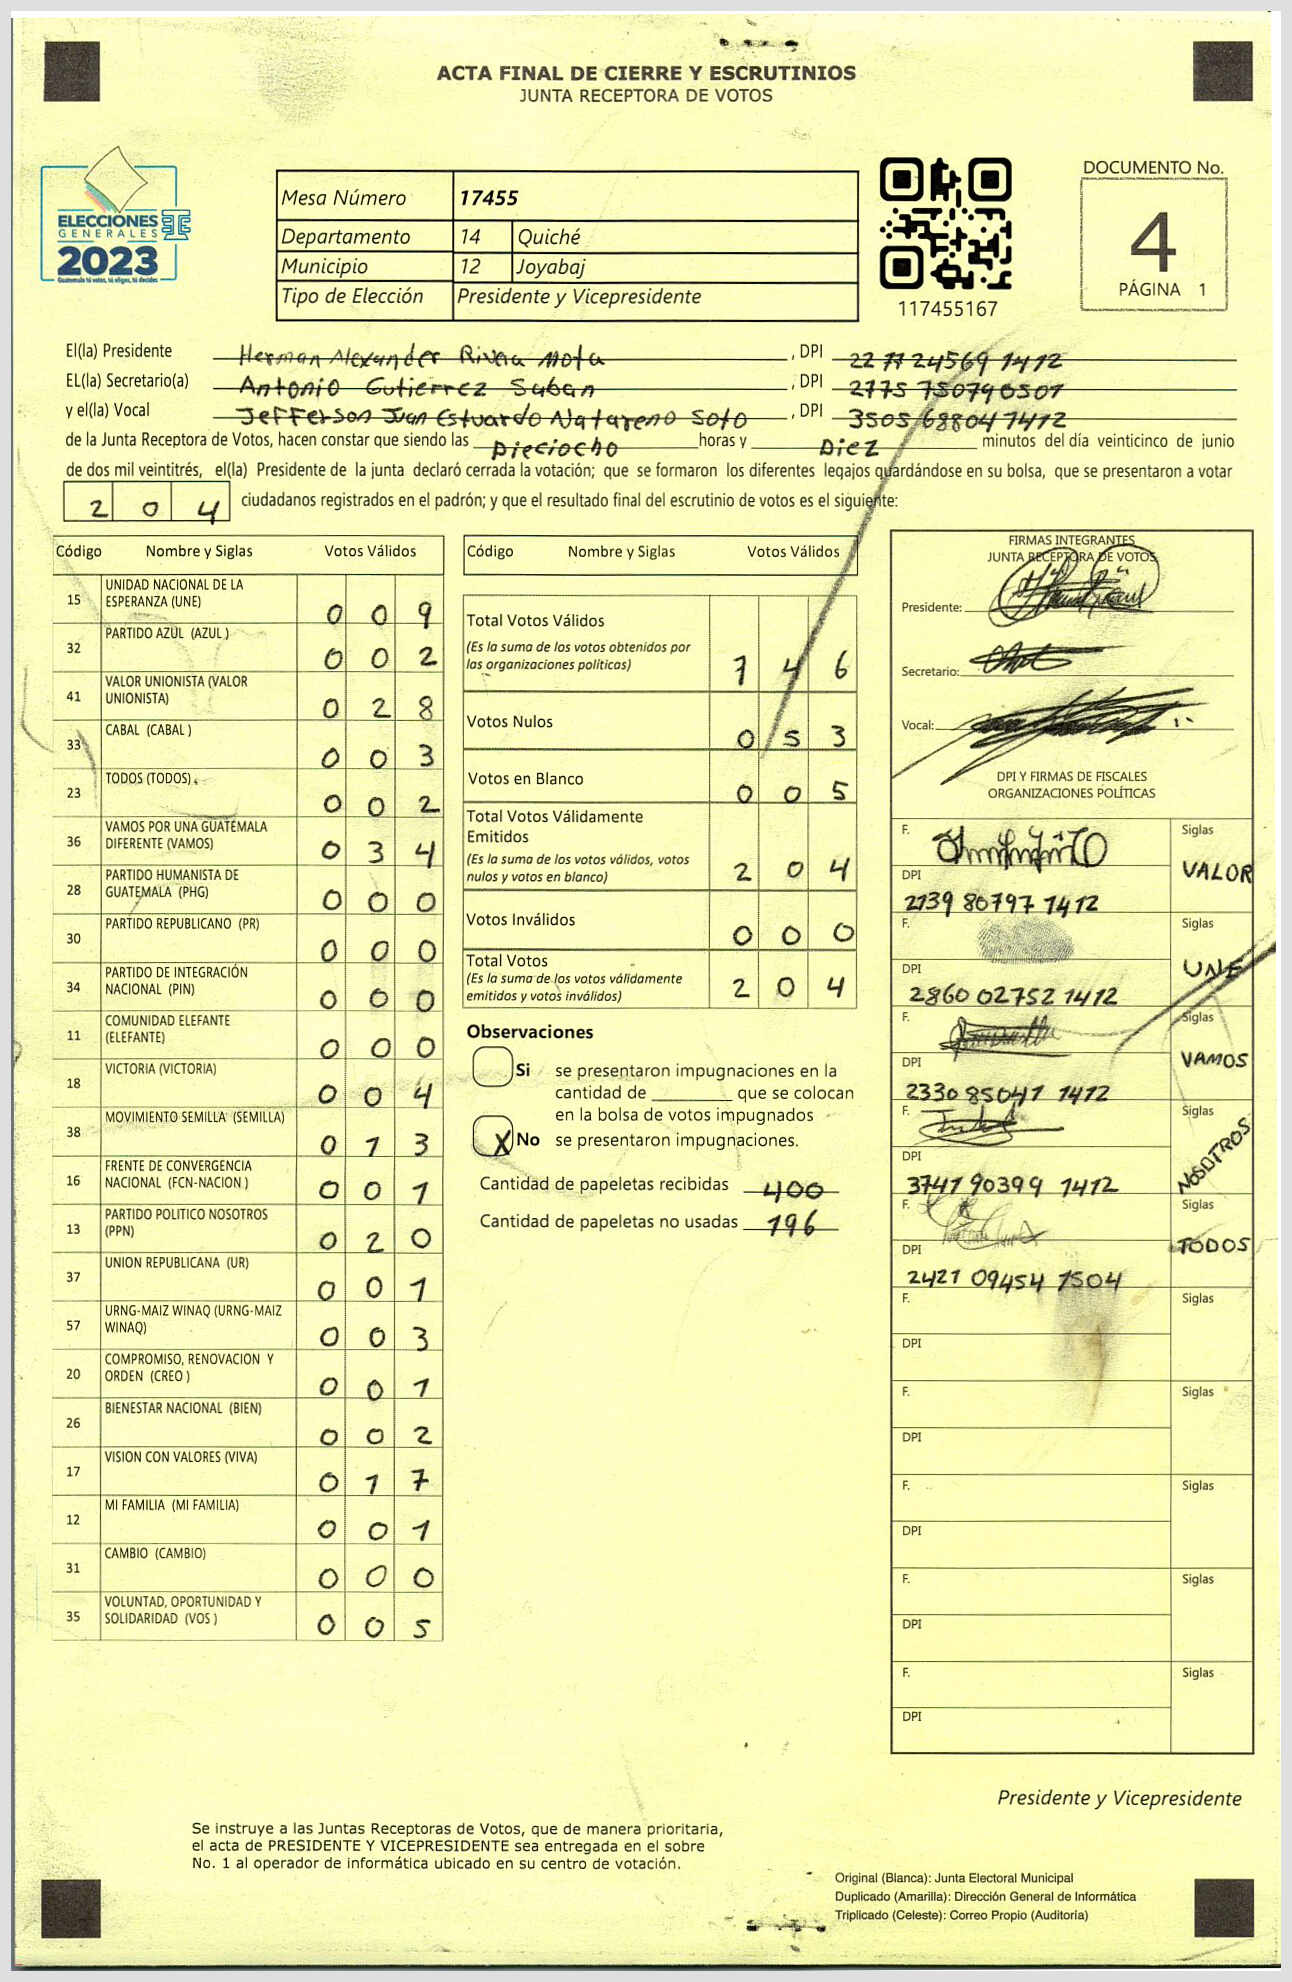 ACTA FINAL DE CIERRE Y ESCRUTINIOS
JUNTA RECEPTORA DE VOTOS
ELECCIONES
GENERALES
2023
Guatemala tú votas, tú eliges, tú decides
Mesa Número 17455
Departamento 14 Quiché
Municipio 12 Joyabaj
Tipo de Elección Presidente y Vicepresidente
117455167
DOCUMENTO No.
4
PÁGINA 1
El(la) Presidente Herman Alexander Rivera Mota, DPI 22 77 24569 1412
EL(la) Secretario(a) Antonio Gutierrez Suban, DPI 2775 75079 0501
y el(la) Vocal Jefferson Juan Estuardo Natareno Soto, DPI 3505 68804 1412
de la Junta Receptora de Votos, hacen constar que siendo las Dieciocho horas y Diez minutos del día veinticinco de junio
de dos mil veintitrés, el(la) Presidente de la junta declaró cerrada la votación; que se formaron los diferentes legajos guardándose en su bolsa, que se presentaron a votar
2 0 4 ciudadanos registrados en el padrón; y que el resultado final del escrutinio de votos es el siguiente:
Código Nombre y Siglas Votos Válidos
15 UNIDAD NACIONAL DE LA
ESPERANZA (UNE) 0 0 9
32 PARTIDO AZUL (AZUL ) 0 0 2
41 VALOR UNIONISTA (VALOR
UNIONISTA) 0 2 8
33 CABAL (CABAL ) 0 0 3
23 TODOS (TODOS) 0 0 2
36 VAMOS POR UNA GUATEMALA
DIFERENTE (VAMOS) 0 3 4
28 PARTIDO HUMANISTA DE
GUATEMALA (PHG) 0 0 0
30 PARTIDO REPUBLICANO (PR) 0 0 0
34 PARTIDO DE INTEGRACIÓN
NACIONAL (PIN) 0 0 0
11 COMUNIDAD ELEFANTE
(ELEFANTE) 0 0 0
18 VICTORIA (VICTORIA) 0 0 4
38 MOVIMIENTO SEMILLA (SEMILLA) 0 1 3
16 FRENTE DE CONVERGENCIA
NACIONAL (FCN-NACION ) 0 0 1
13 PARTIDO POLITICO NOSOTROS
(PPN) 0 2 0
37 UNION REPUBLICANA (UR) 0 0 1
57 URNG-MAIZ WINAQ (URNG-MAIZ
WINAQ) 0 0 3
20 COMPROMISO, RENOVACION Y
ORDEN (CREO ) 0 0 1
26 BIENESTAR NACIONAL (BIEN) 0 0 2
17 VISION CON VALORES (VIVA) 0 1 7
12 MI FAMILIA (MI FAMILIA) 0 0 1
31 CAMBIO (CAMBIO) 0 0 0
35 VOLUNTAD, OPORTUNIDAD Y
SOLIDARIDAD (VOS ) 0 0 5
Código Nombre y Siglas Votos Válidos
Total Votos Válidos
(Es la suma de los votos obtenidos por
las organizaciones políticas) 1 4 6
Votos Nulos 0 5 3
Votos en Blanco 0 0 5
Total Votos Válidamente
Emitidos
(Es la suma de los votos válidos, votos
nulos y votos en blanco) 2 0 4
Votos Inválidos 0 0 0
Total Votos
(Es la suma de los votos válidamente
emitidos y votos inválidos) 2 0 4
Observaciones
Si se presentaron impugnaciones en la
cantidad de ________ que se colocan
en la bolsa de votos impugnados
X No se presentaron impugnaciones.
Cantidad de papeletas recibidas 400
Cantidad de papeletas no usadas 196
FIRMAS INTEGRANTES
JUNTA RECEPTORA DE VOTOS
Presidente:
Secretario:
Vocal:
DPI Y FIRMAS DE FISCALES
ORGANIZACIONES POLÍTICAS
F. Siglas
VALOR
DPI
2139 80797 1412
F. Siglas
UNE
DPI
2860 02752 1412
F. Siglas
VAMOS
DPI
2330 85041 1412
F. Siglas
NOSOTROS
DPI
3741 90399 1412
F. Siglas
TODOS
DPI
2421 09454 1504
F. Siglas
DPI
F. Siglas
DPI
F. Siglas
DPI
F. Siglas
DPI
F. Siglas
DPI
Presidente y Vicepresidente
Se instruye a las Juntas Receptoras de Votos, que de manera prioritaria,
el acta de PRESIDENTE Y VICEPRESIDENTE sea entregada en el sobre
No. 1 al operador de informática ubicado en su centro de votación.
Original (Blanca): Junta Electoral Municipal
Duplicado (Amarilla): Dirección General de Informática
Triplicado (Celeste): Correo Propio (Auditoría)